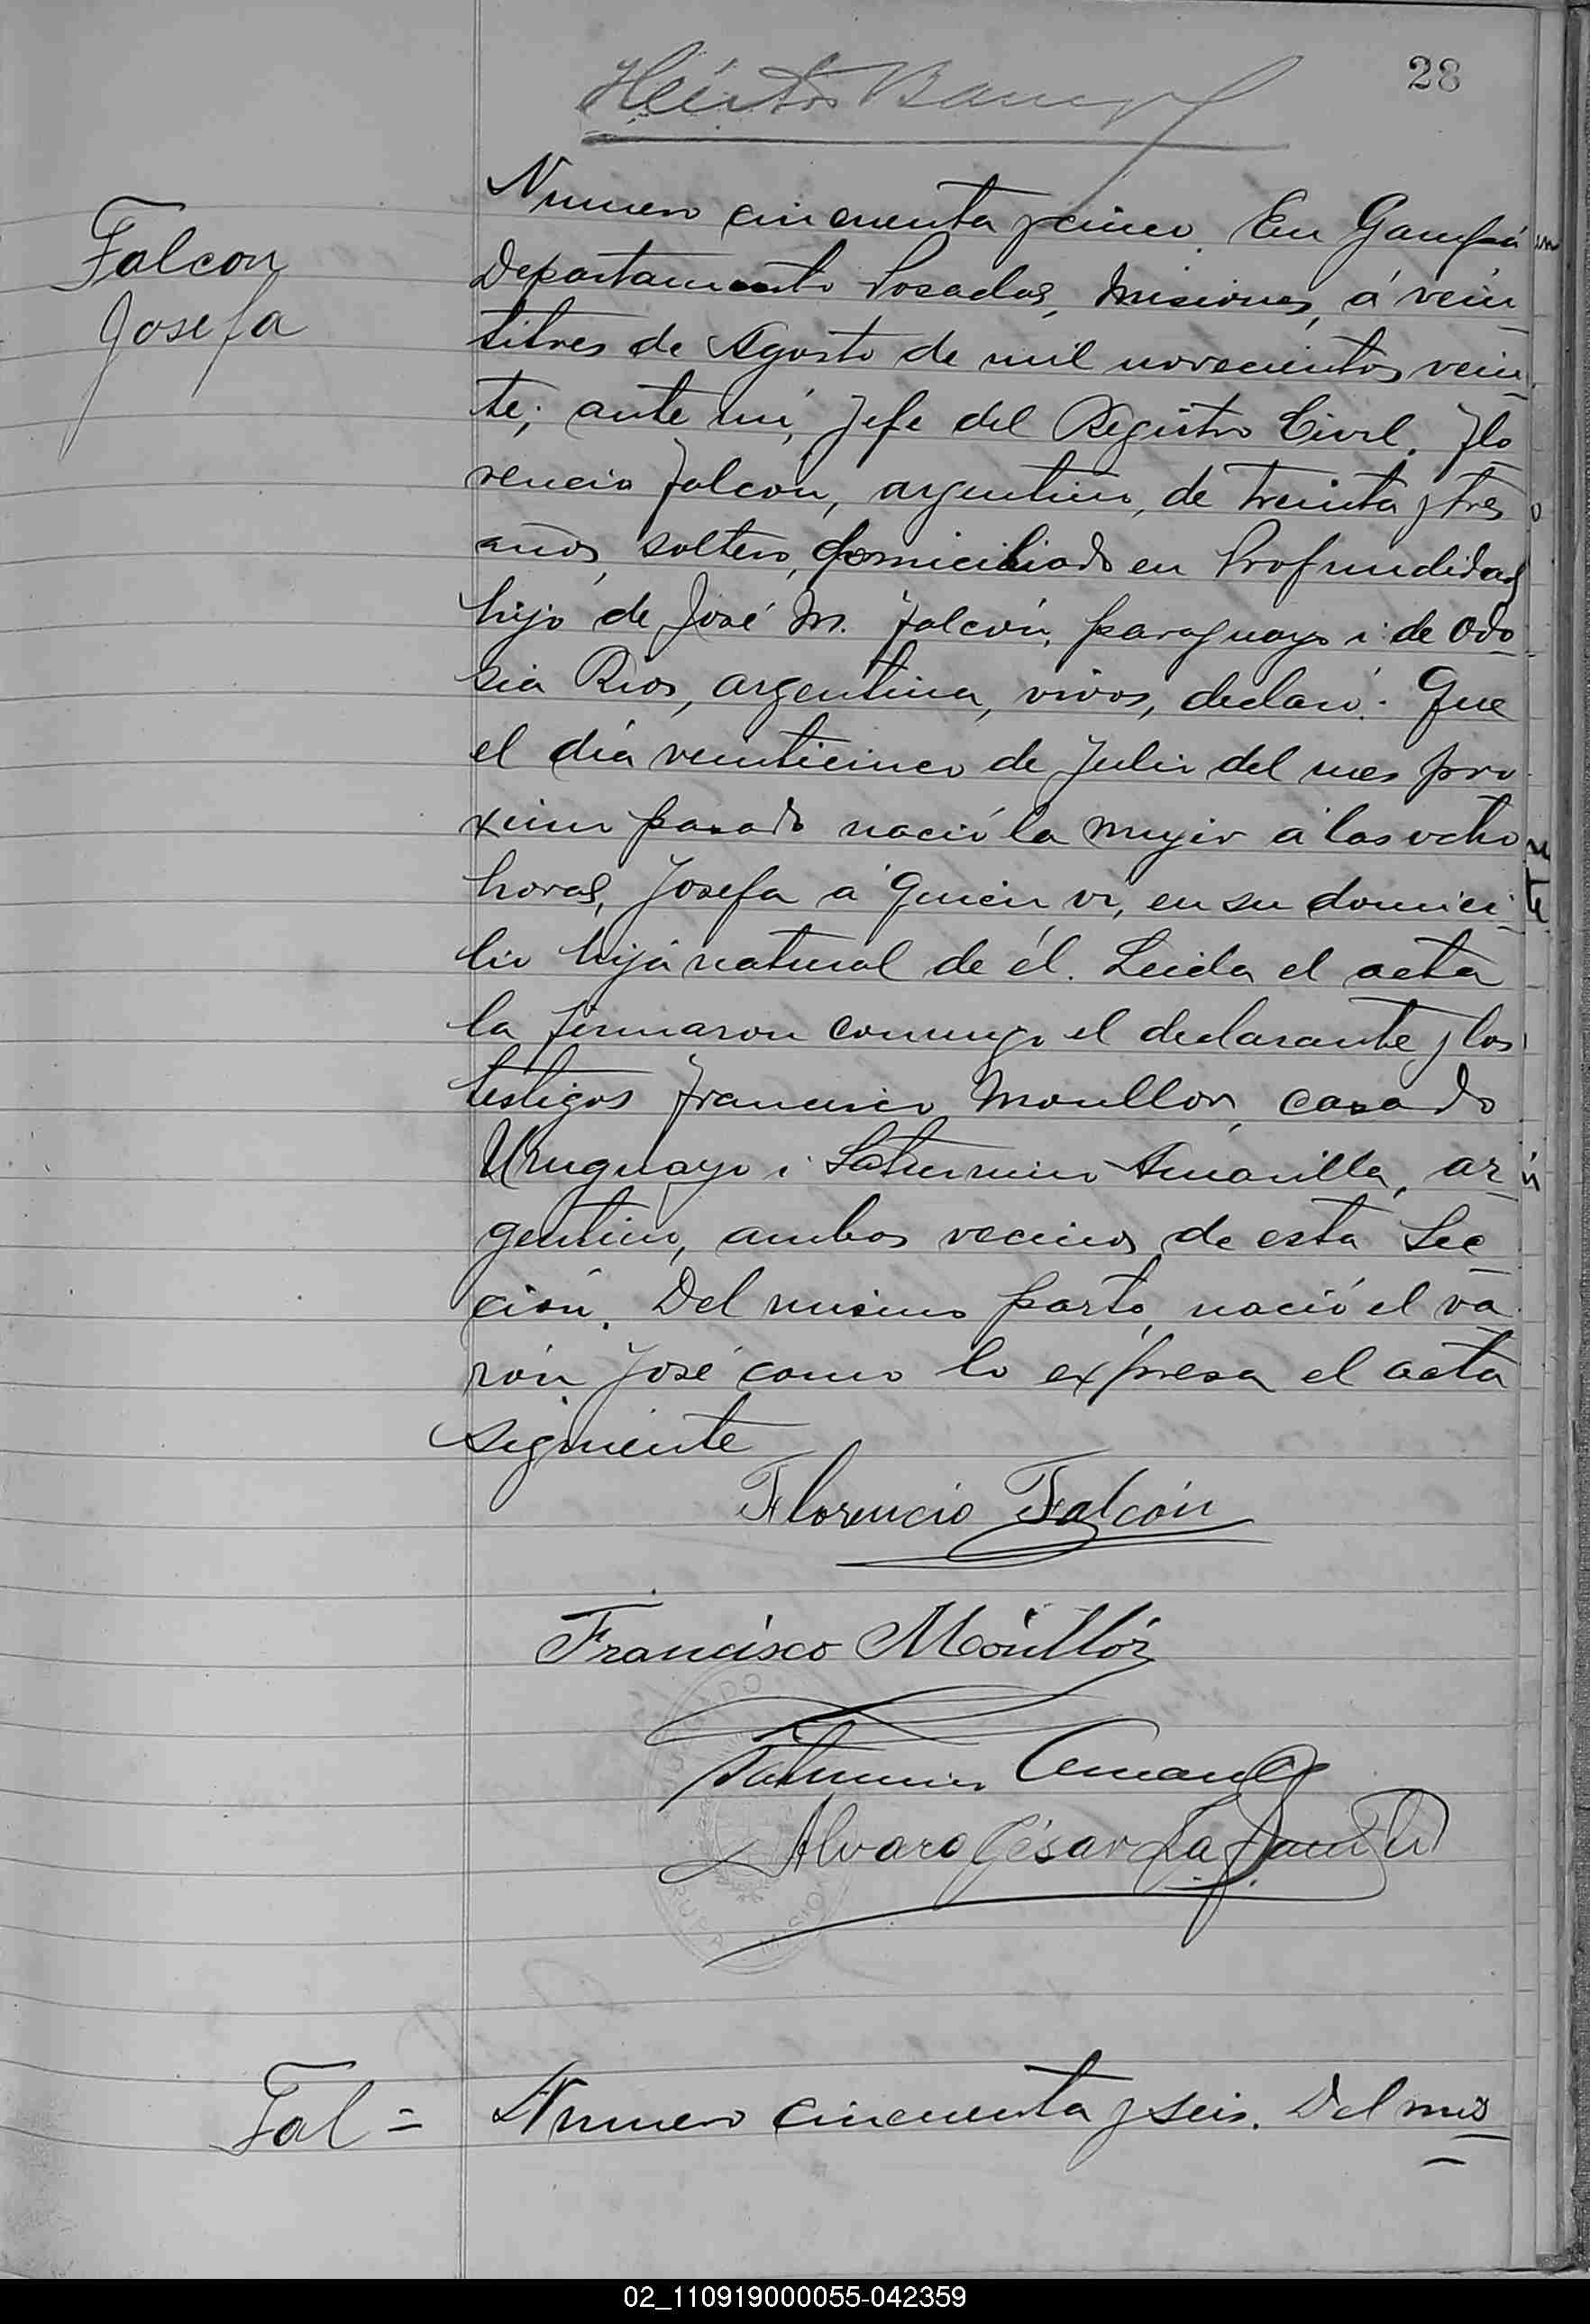 28
Falcon
Josefa
Numero cincuenta y cinco. En Garupá
Departamento Posadas, Misiones, á vein
titres de Agosto de mil novecientos vein
te; ante mí, Jefe del Registro Civil. Flo
rencio Falcón, argentino, de treinta y tres
años, soltero, domiciliado en Profundidad
hijo de José M. Falcón, paraguayo i de Odo
sia Rios, argentina, vivos, declaró: Que
el día veinticinco de Julio del mes pro
ximo pasado nació la mujer a las ocho
horas, Josefa a quien vi, en su domici
lio hija natural de él. Leida el acta
la firmaron conmigo el declarante y los
testigos Francisco Moullor, casado
Uruguayo i Saturnino Amarilla, ar
gentino, ambos vecinos de esta Sec
ción. Del mismo parto, nació el va
rón José como lo expresa el acta
siguiente
Florencio Falcón
Francisco Moullór
Saturnino
Alvaro César
Fal= Numero cincuenta y seis. Del mis
02_110919000055-042359